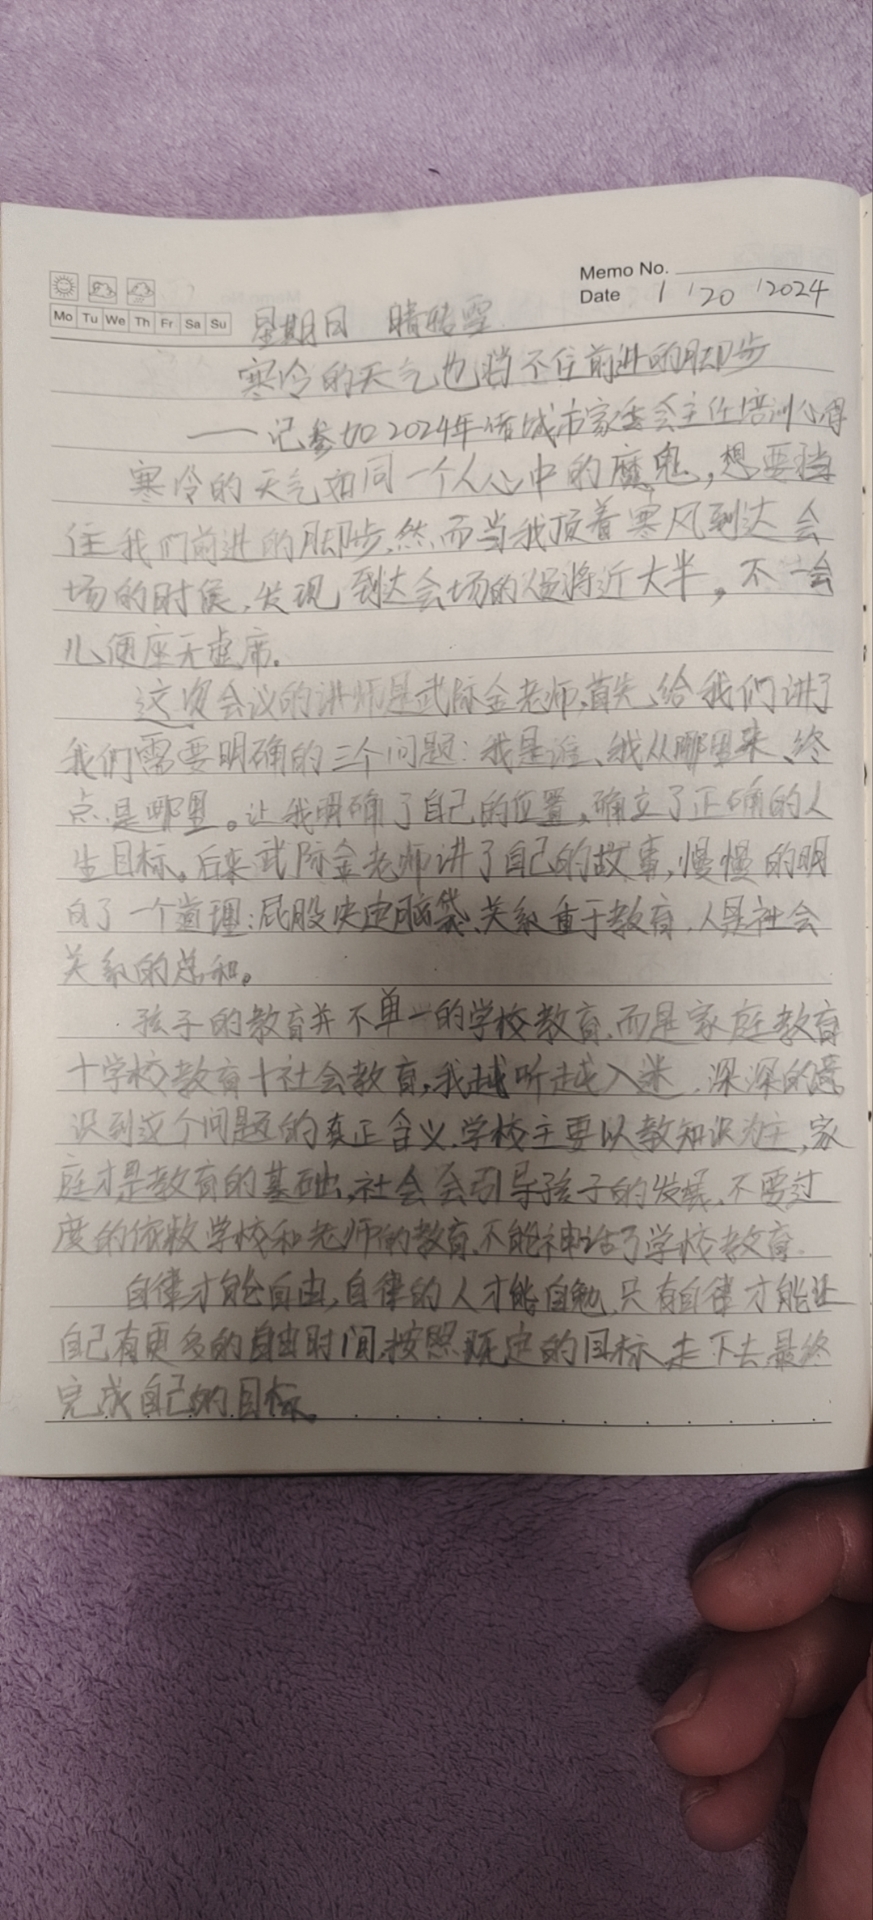 Memo No.
Date 1 / 20 / 2024
Mo Tu We Th Fr Sa Su
星期日 晴转雪
寒冷的天气也挡不住前进的脚步
——记参加2024年诸城市家委会主任培训心得
寒冷的天气如同一个人心中的魔鬼,想要挡
住我们前进的脚步.然而当我顶着寒风到达会
场的时侯,发现到达会场的人将近大半,不一会
儿便座无虚席.
这次会议的讲师是武际金老师,首先给我们讲了
我们需要明确的三个问题:我是谁、我从哪里来、终
点是哪里。让我明确了自己的位置,确立了正确的人
生目标。后来武际金老师讲了自己的故事,慢慢的明
白了一个道理:屁股决定脑袋、关系重于教育.人是社会
关系的总和。
孩子的教育并不单一的学校教育.而是家庭教育
十学校教育十社会教育,我越听越入迷.深深的意
识到这个问题的真正含义.学校主要以教知识为主,家
庭才是教育的基础,社会会引导孩子的发展.不要过
度的依救学校和老师的教育.不能神话了学校教育.
自律才能自由,自律的人才能自勉.只有自律才能让
自己有更多的自由时间.按照既定的目标走下去.最终
完成自己的目标。